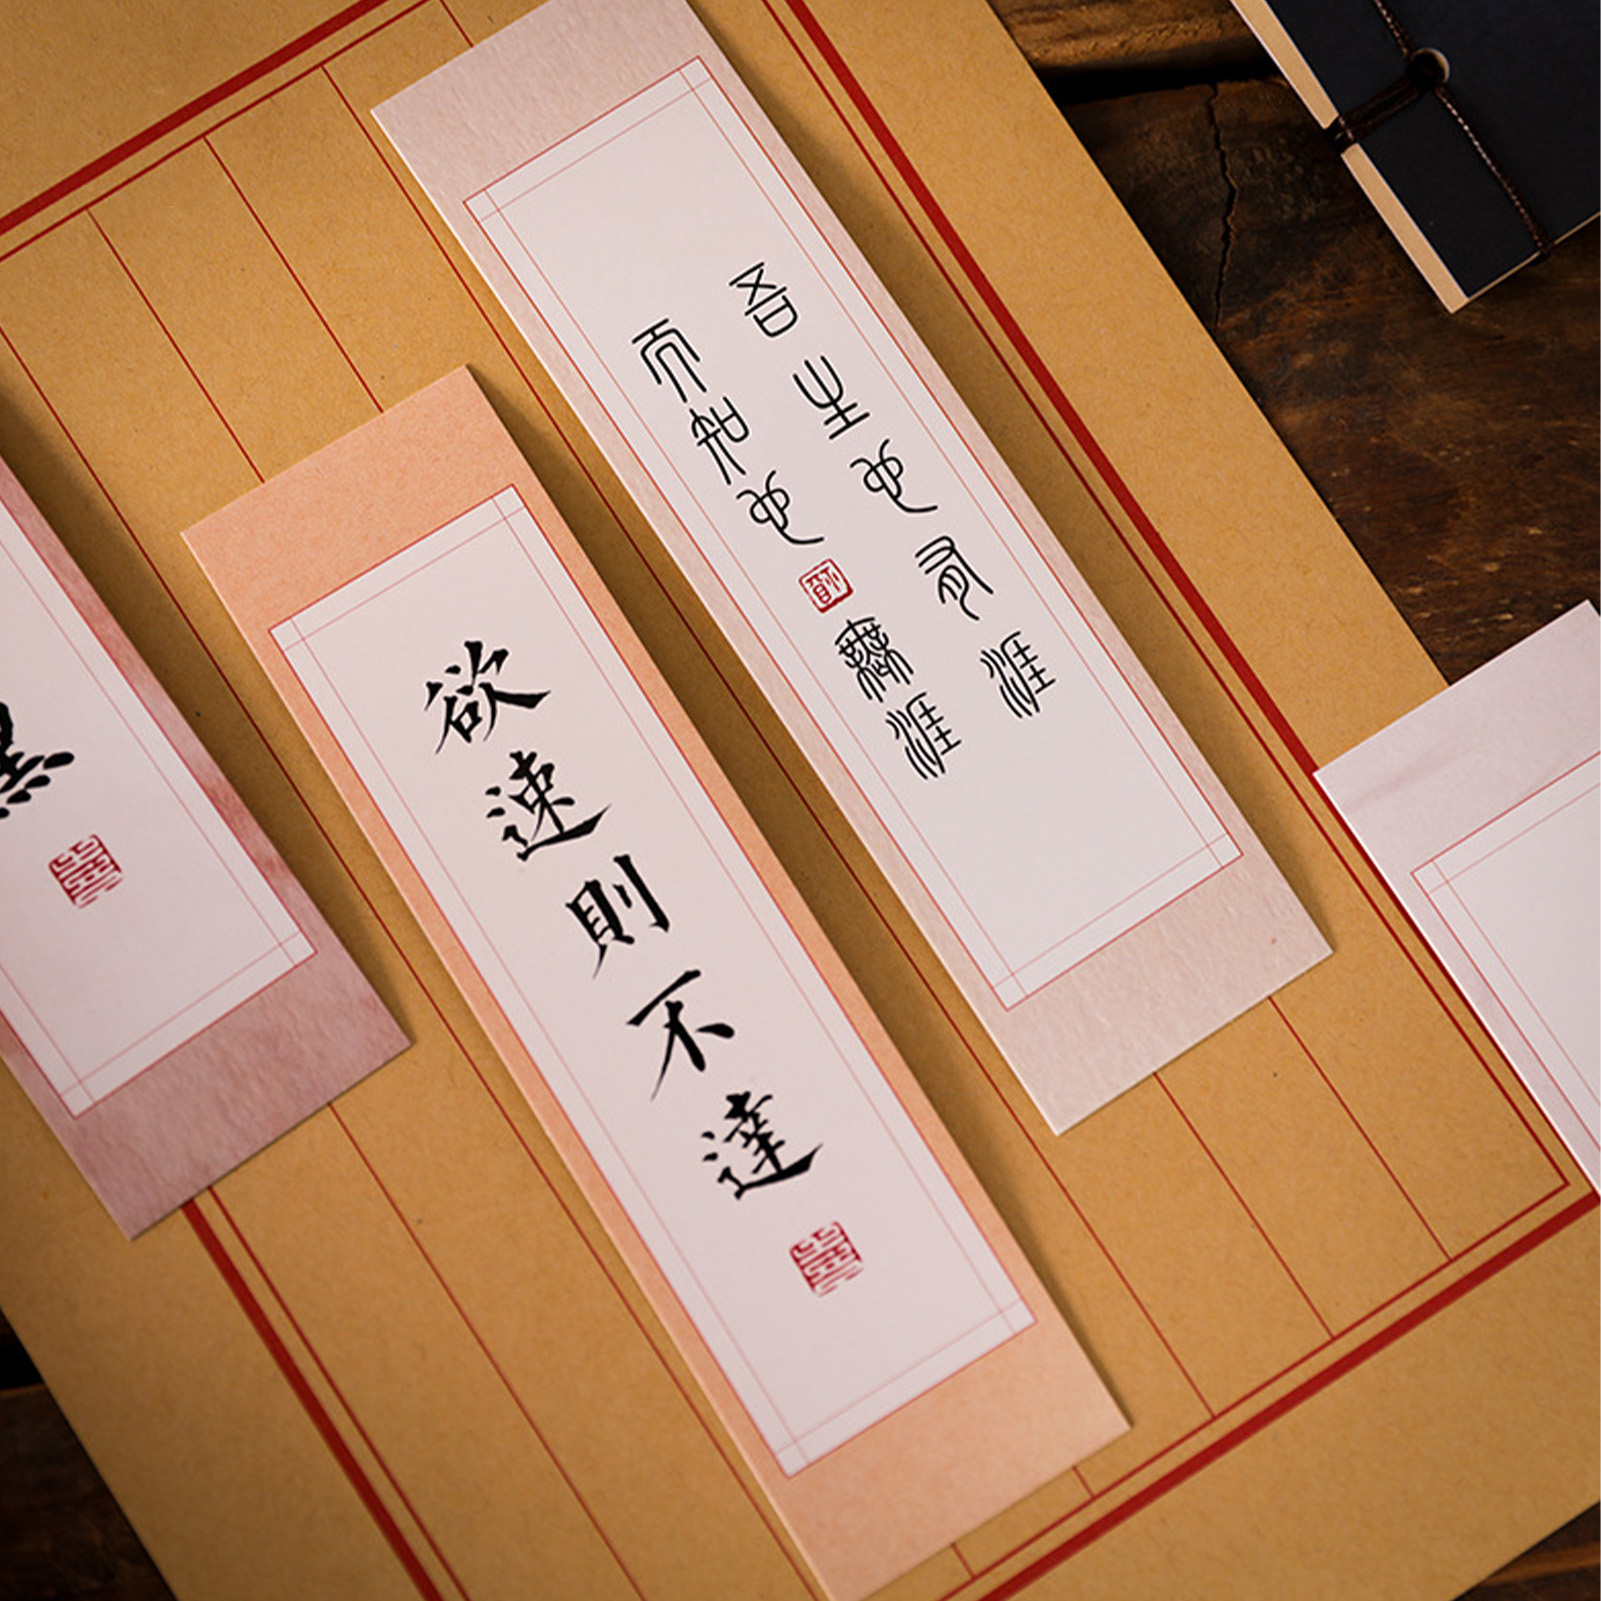 吾生也有涯
而知也無涯
欲速則不達
黑